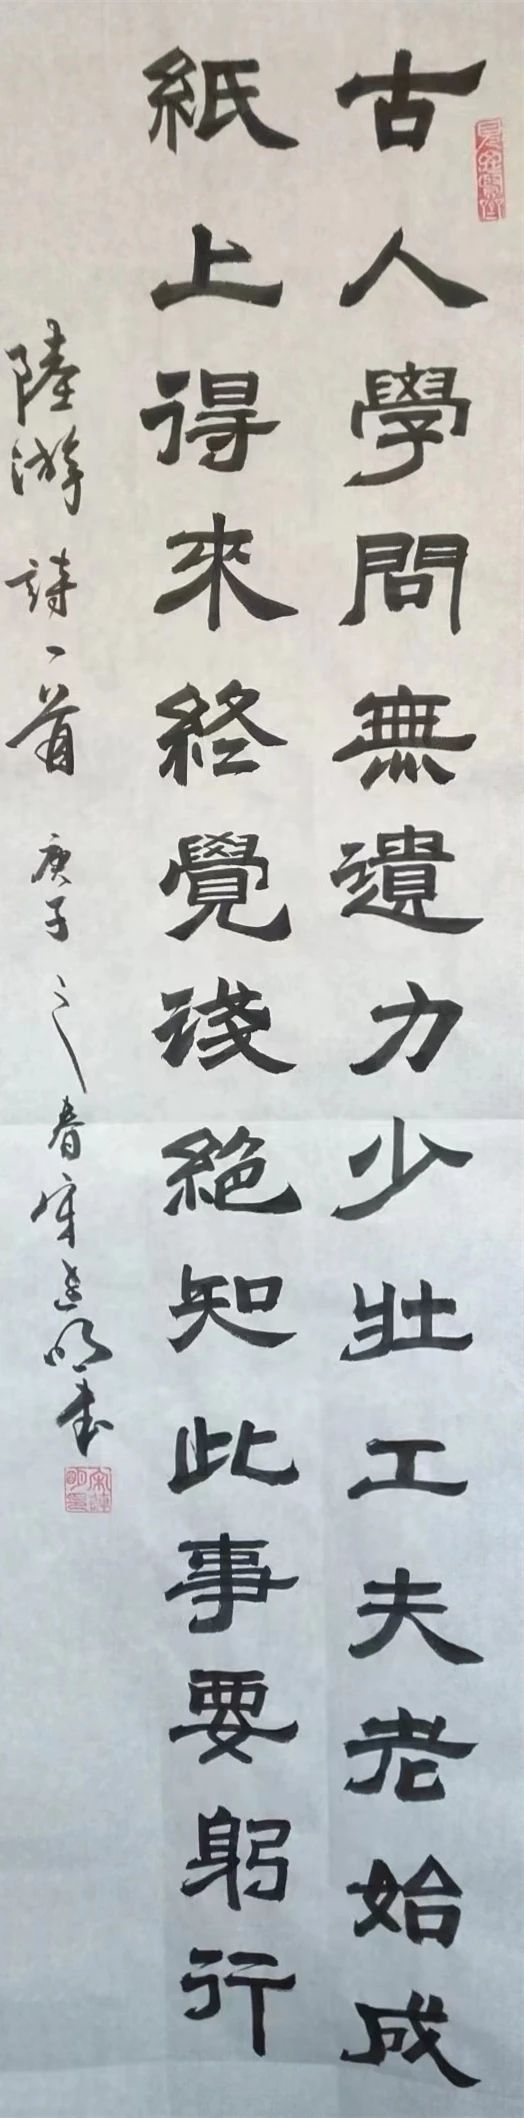 古人學問無遺力少壯工夫老始成
紙上得來終覺淺絕知此事要躬行
陸游詩一首 庚子之春宋達明書